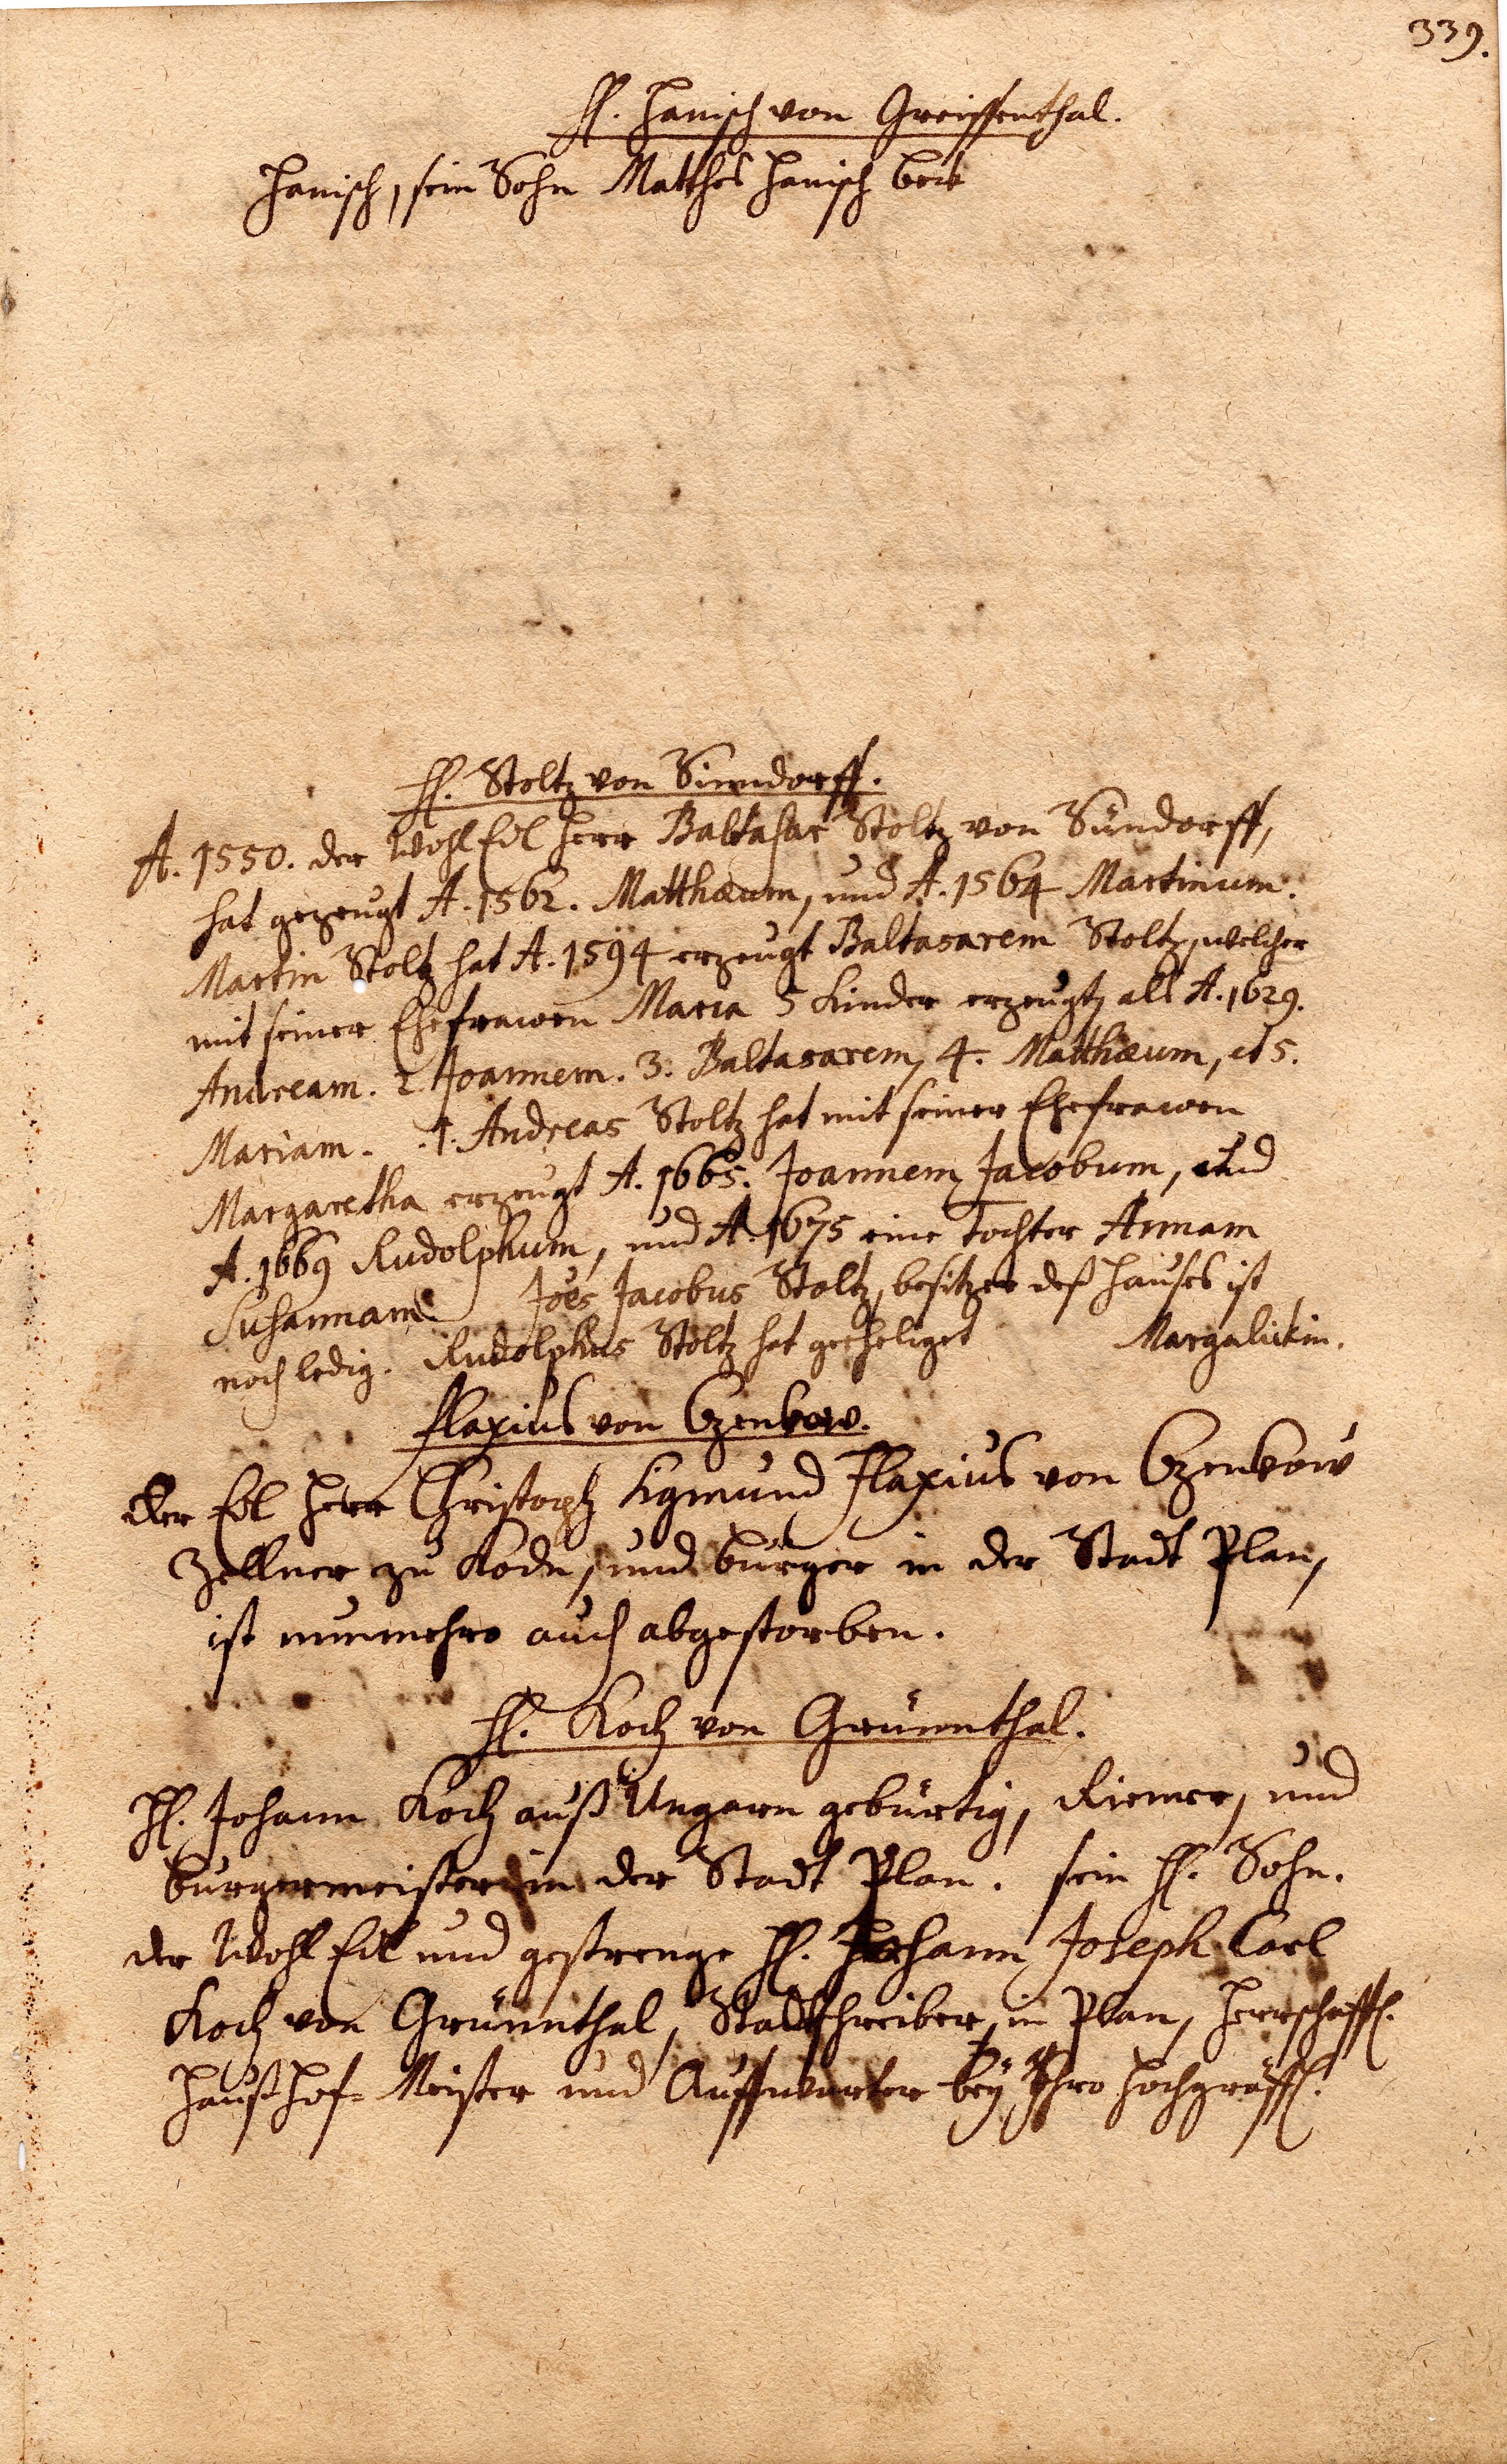 339.
H. Hanisch von Greissenthal.
Hanisch, sein Sohn Matthes Hanisch
H. Stoltz von Simdorff.
A. 1550. der Wohl Edl Herr Baltasar Stoltz von Sündorff,
hat gezeugt A. 1562. Matthæum, und A. 1564 Martinum.
Martin Stoltz hat A. 1594 erzeugt Baltasarem Stoltz, welcher
mit seiner Ehefrawen Maria 5 Kinder erzeugt, als A. 1629.
Andream. 2. Joannem. 3. Baltasarem, 4. Matthæum, et 5.
Mariam. 1. Andreas Stoltz hat mit seiner Ehefrawen
Margaretha erzeugt A. 1665. Joannem Jacobum, und
A. 1669 Rudolphum, und A. 1675 eine Tochter Annam
Susannam. Joës Jacobus Stoltz, besitzer deß Hauses ist
noch ledig. Rudolphus Stoltz hat geeheliget Margalickin.
Flaxius von Czenkow.
Der Edl Herr Christoph Sigmund Flaxius von Czenkow
Zöllner zu Kodn, und burger in der Stadt Plan,
ist nunmehro auch abgestorben.
H. Koch von Grünnthal.
H. Johann Koch auß Ungarn gebürtig, Riemer, und
burgermeister in der Stadt Plan. sein H. Sohn.
der Wohl Edl und gestrenge H. Johann Joseph Carl
Koch von Grünnthal, Stadtschreiber in Plan, Herrschaffl.
Haußhof-Meister und Auffwarter bey Ihro Hochgräffl.